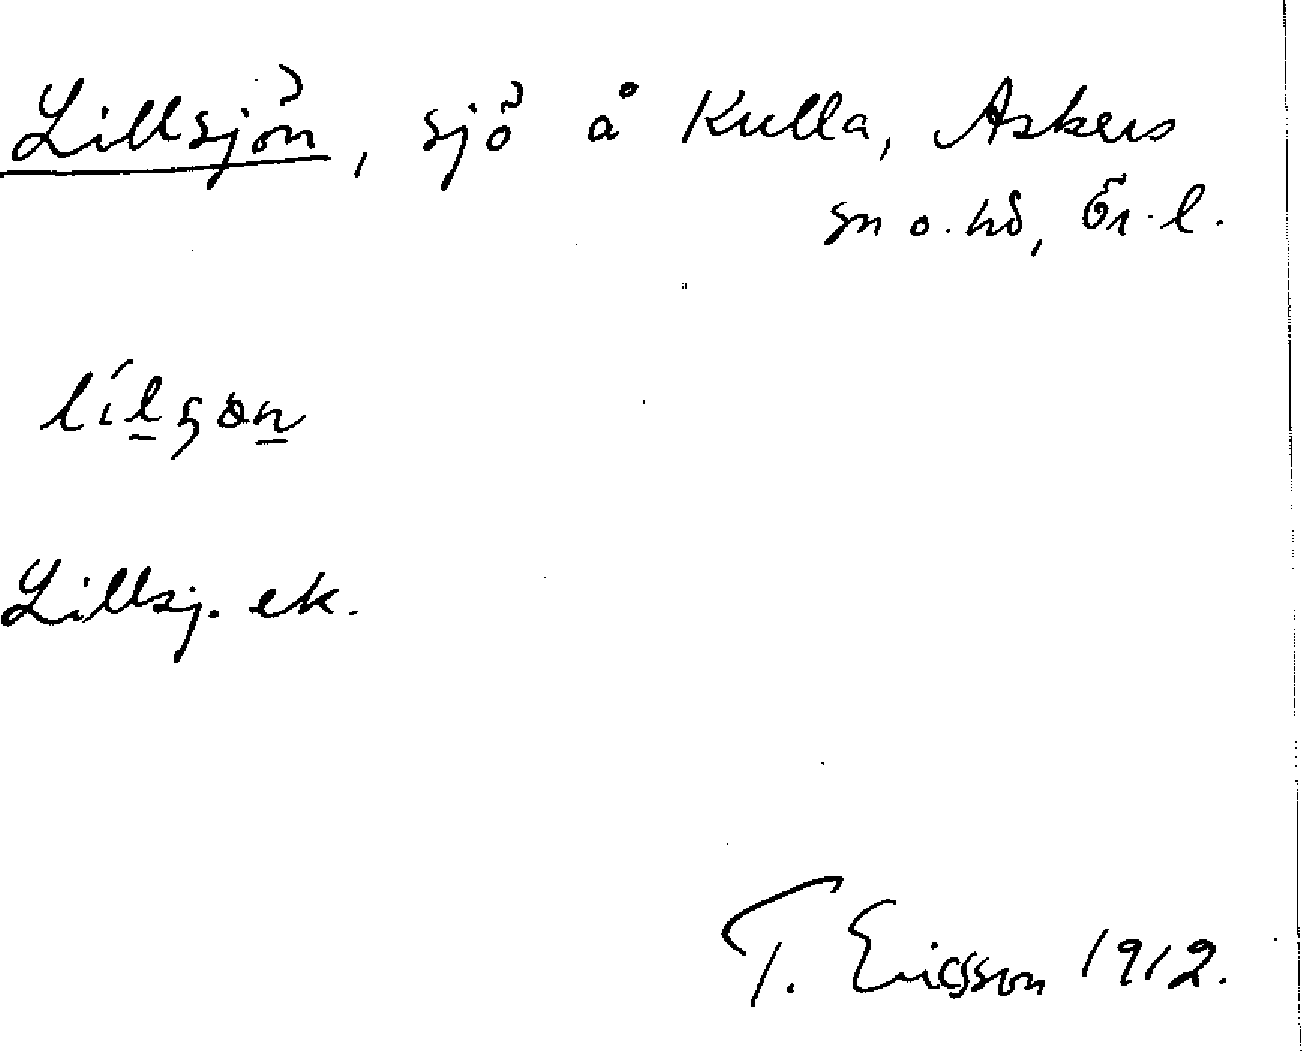 Lillsjön, sjö å Kulla, Askers
sn o. hd, Ör. l.
lílşön
Lillsj. ek.
T. Ericsson 1912.